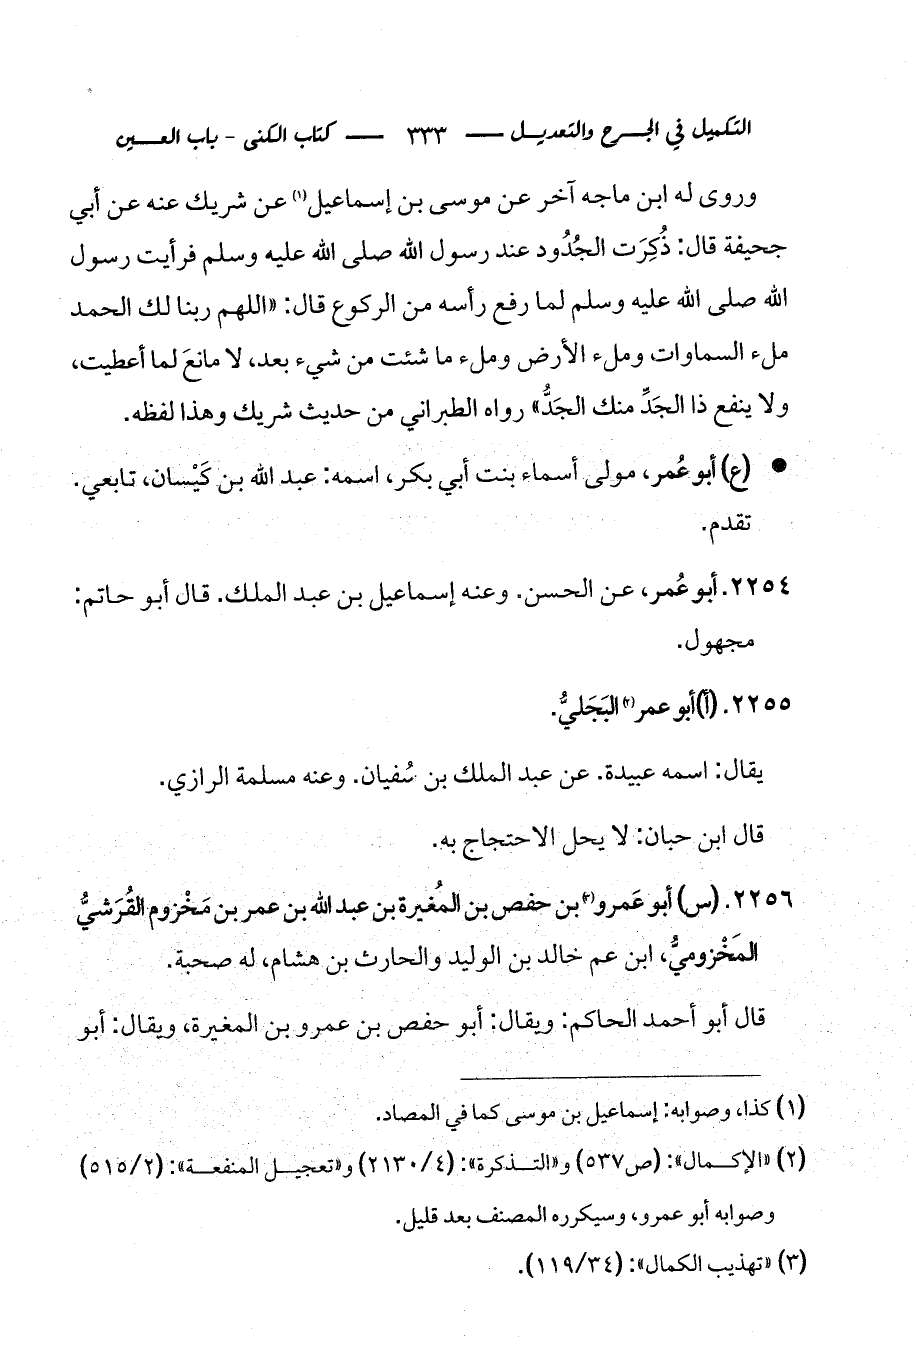 التكميل في الجرح والتعديل — ٣٣٣ — كتاب الكنى - باب العين
وروى له ابن ماجه آخر عن موسى بن إسماعيل(١) عن شريك عنه عن أبي
جحيفة قال: ذُكِرَت الجُدُود عند رسول الله صلى الله عليه وسلم فرأيت رسول
الله صلى الله عليه وسلم لما رفع رأسه من الركوع قال: «اللهم ربنا لك الحمد
ملء السماوات وملء الأرض وملء ما شئت من شيء بعد، لا مانعَ لما أعطيت،
ولا ينفع ذا الجَدِّ منك الجَدُّ» رواه الطبراني من حديث شريك وهذا لفظه.
● (ع) أبو عُمر، مولى أسماء بنت أبي بكر، اسمه: عبد الله بن كَيْسان، تابعي.
تقدم.
٢٢٥٤. أبو عُمر، عن الحسن. وعنه إسماعيل بن عبد الملك. قال أبو حاتم:
مجهول.
٢٢٥٥. (أ) أبو عمر(٢) البَجَليُّ.
يقال: اسمه عبيدة. عن عبد الملك بن سُفيان. وعنه مسلمة الرازي.
قال ابن حبان: لا يحل الاحتجاج به.
٢٢٥٦. (س) أبو عَمرو(٣) بن حفص بن المُغيرة بن عبد الله بن عمر بن مَخْزوم القُرَشيُّ
المَخْزوميُّ، ابن عم خالد بن الوليد والحارث بن هشام، له صحبة.
قال أبو أحمد الحاكم: ويقال: أبو حفص بن عمرو بن المغيرة، ويقال: أبو
(١) كذا، وصوابه: إسماعيل بن موسى كما في المصاد.
(٢) «الإكمال»: (ص٥٣٧) و«التذكرة»: (٢١٣٠/٤) و«تعجيل المنفعة»: (٥١٥/٢)
وصوابه أبو عمرو، وسيكرره المصنف بعد قليل.
(٣) «تهذيب الكمال»: (١١٩/٣٤).